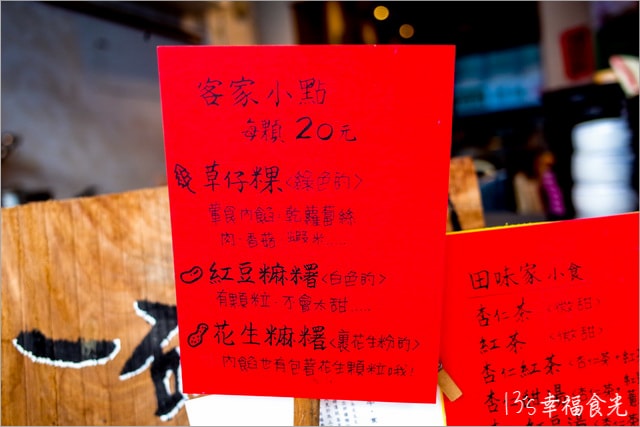 客家小點
每顆 20元
草仔粿<綠色的>
葷食內餡:乾蘿蔔絲
肉、香菇、蝦米.....
紅豆麻糬<白色的>
有顆粒、不會太甜.....
花生麻糬<裹花生粉的>
內餡也有包著花生顆粒哦!
一
田味家小食
杏仁茶 <微甜>
紅茶 <微甜>
杏仁紅茶<杏仁茶+紅
135幸福食光